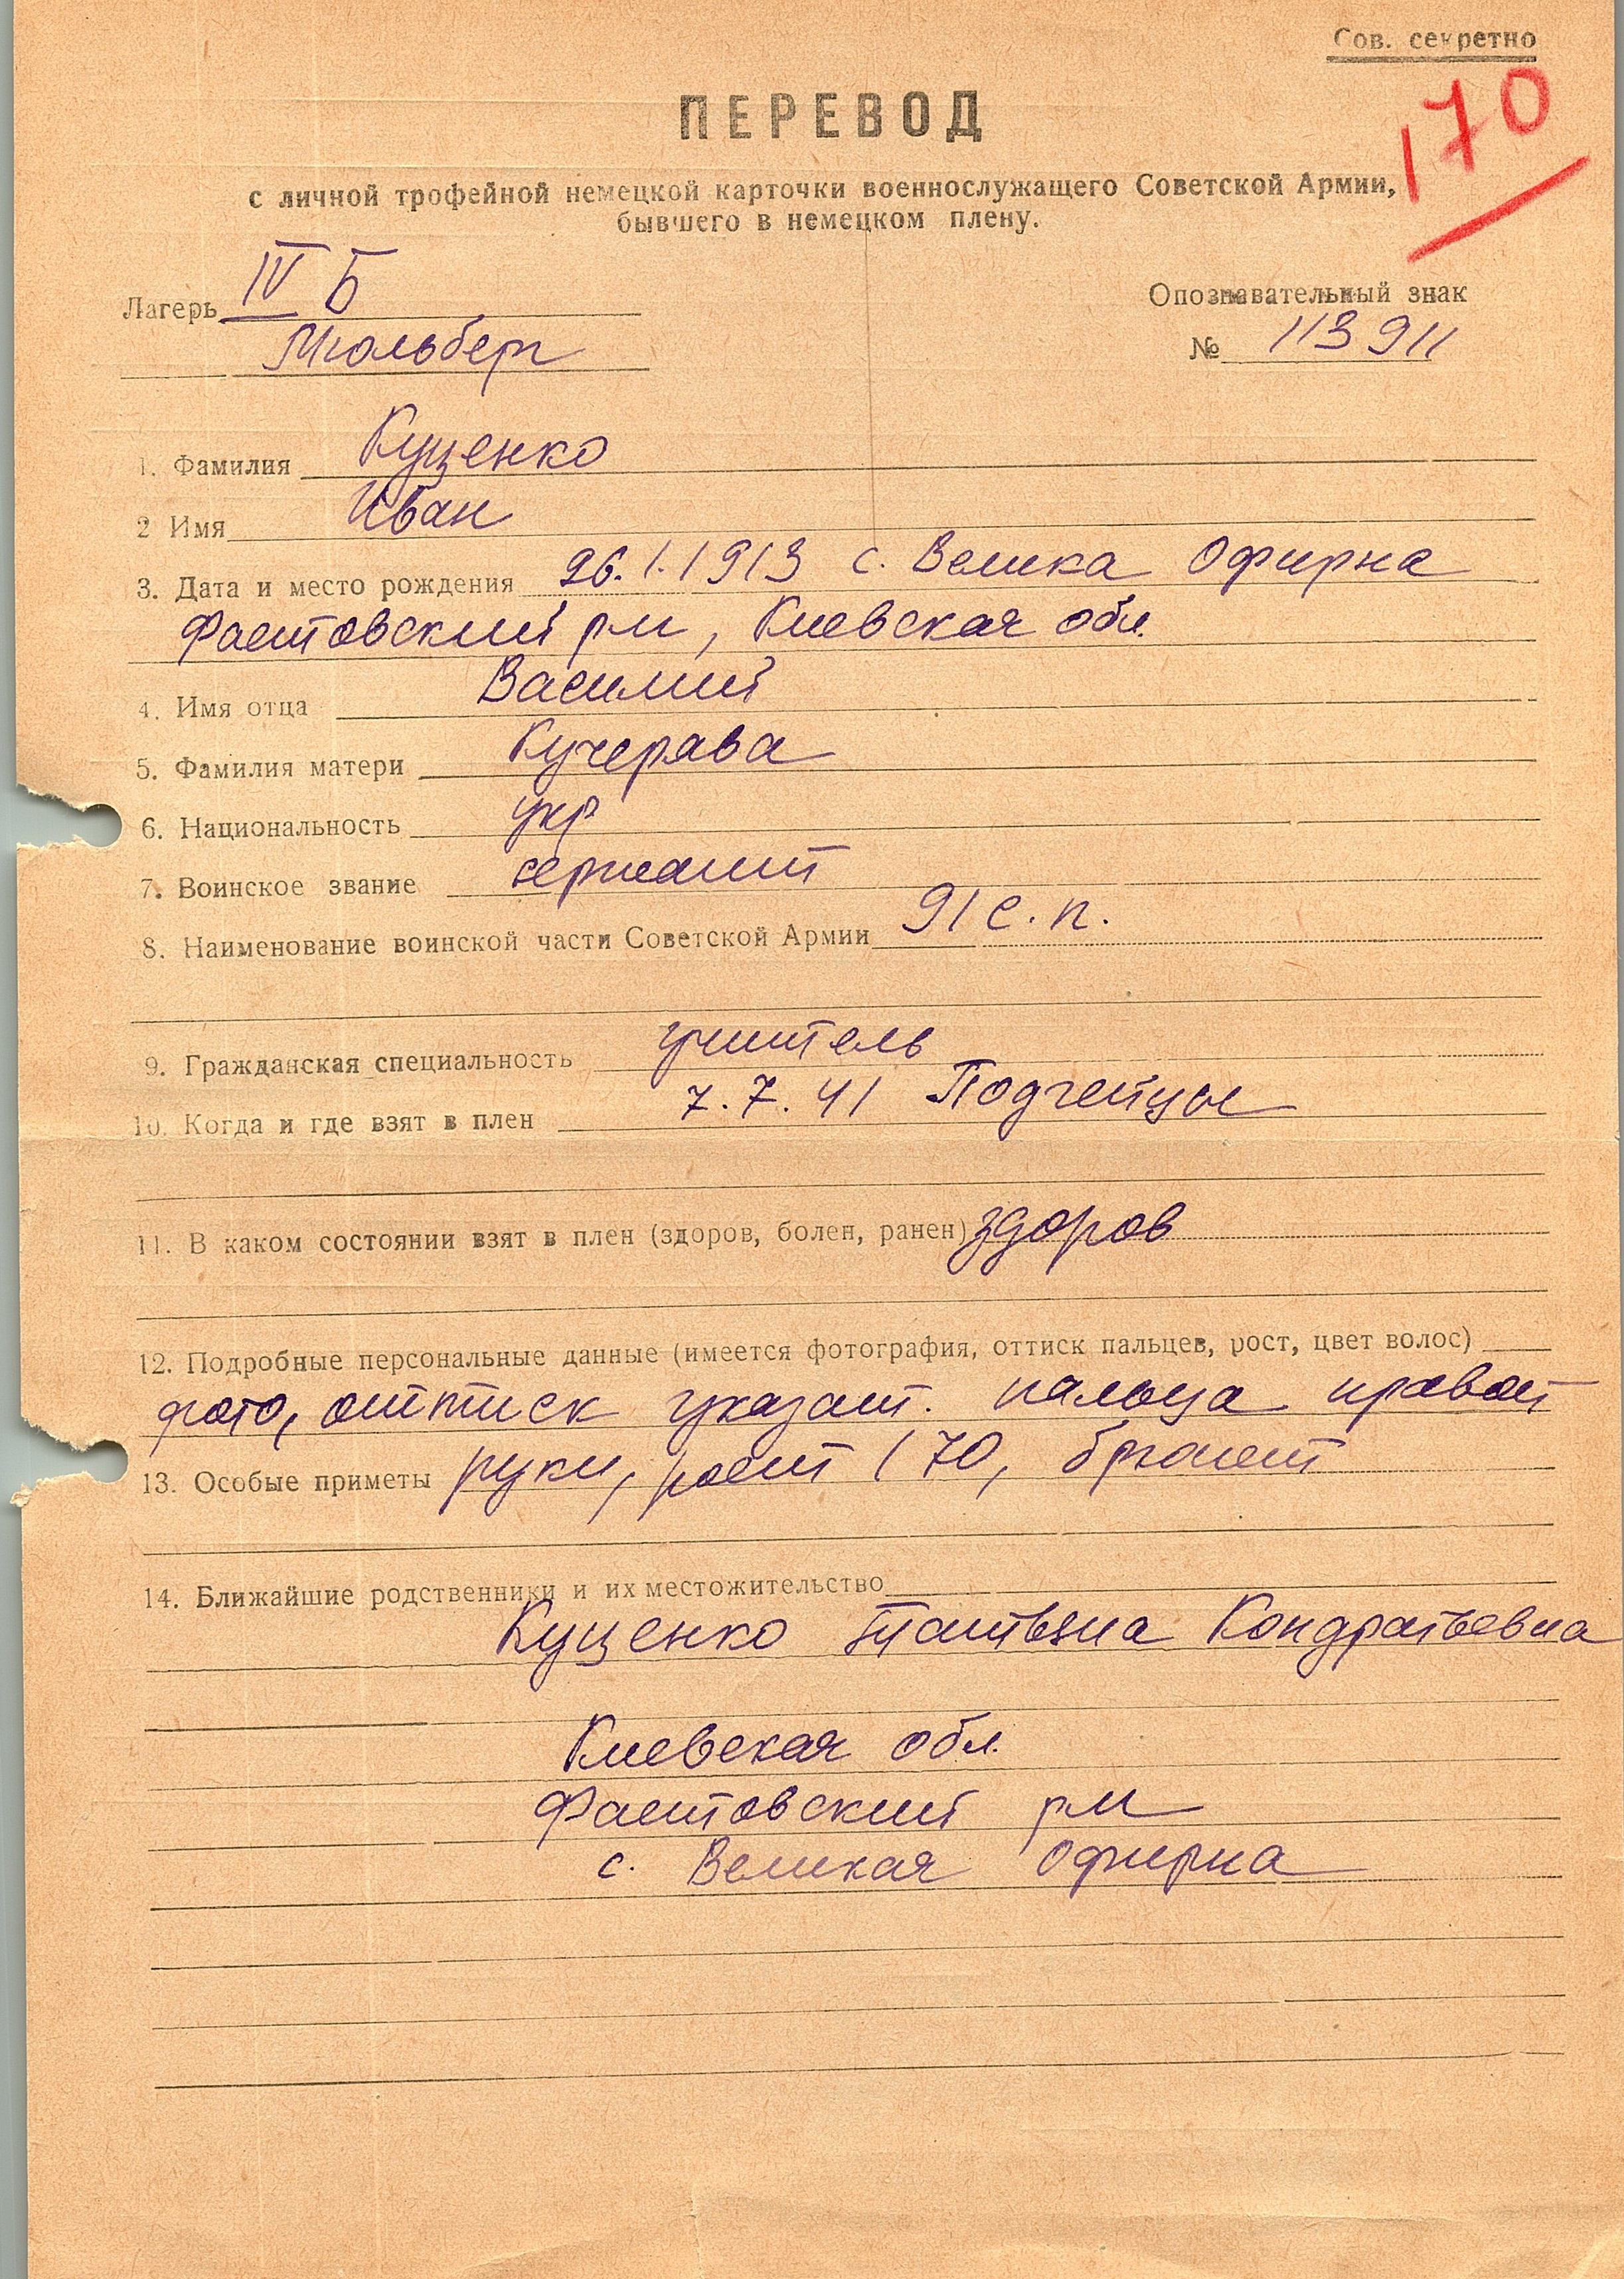 Сов. секретно
170
ПЕРЕВОД
с личной трофейной немецкой карточки военнослужащего Советской Армии,
бывшего в немецком плену.
Лагерь IV Б
Мюльберг
Опознавательный знак
№ 113911
1. Фамилия Куценко
2 Имя Иван
3. Дата и место рождения 26.1.1913 с. Велика Офирна
Фастовский р-н, Киевская обл.
4. Имя отца Василий
5. Фамилия матери Кучерява
6. Национальность укр
7. Воинское звание сержант
8. Наименование воинской части Советской Армии 91 с.п.
9. Гражданская специальность учитель
10. Когда и где взят в плен 7.7.41
11. В каком состоянии взят в плен (здоров, болен, ранен) здоров
12. Подробные персональные данные (имеется фотография, оттиск пальцев, рост, цвет волос)
фото, оттиск указат. пальца правой
13. Особые приметы руки, рост 170, брюнет
14. Ближайшие родственники и их местожительство
Куценко Татьяна Кондратьевна
Киевская обл.
Фастовский р-н
с. Великая Офирна